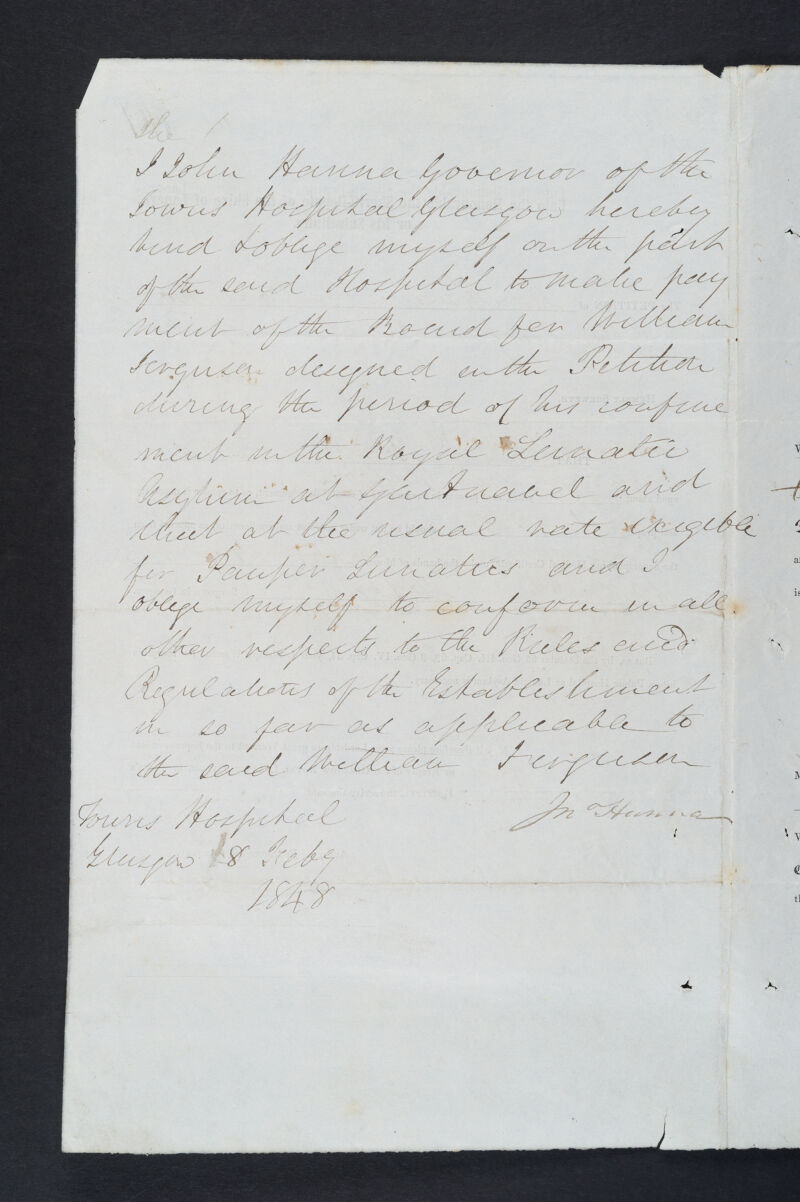 The
I John Hanna Governor of the
Towns Hospital Glasgow hereby
bind & oblige myself on the part
of the said Hospital to make pay
ment of the Board for William
Ferguson designed in the Petition
during the period of his confine
ment in the Royal Lunatic
Asylum at Gartnavel and
that at the usual rate exigible
for Pauper Lunatics and I
oblige myself to conform in all
other respects to the Rules and
Regulations of the Establishment
in so far as applicable to
the said William Ferguson
Jno Hanna
Towns Hospital
Glasgow 8 Feby
1848